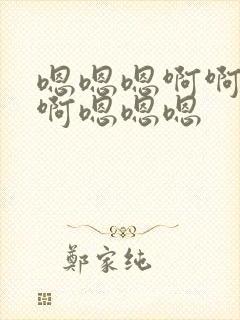 嗯嗯嗯啊啊
啊嗯嗯嗯
鄭家纯